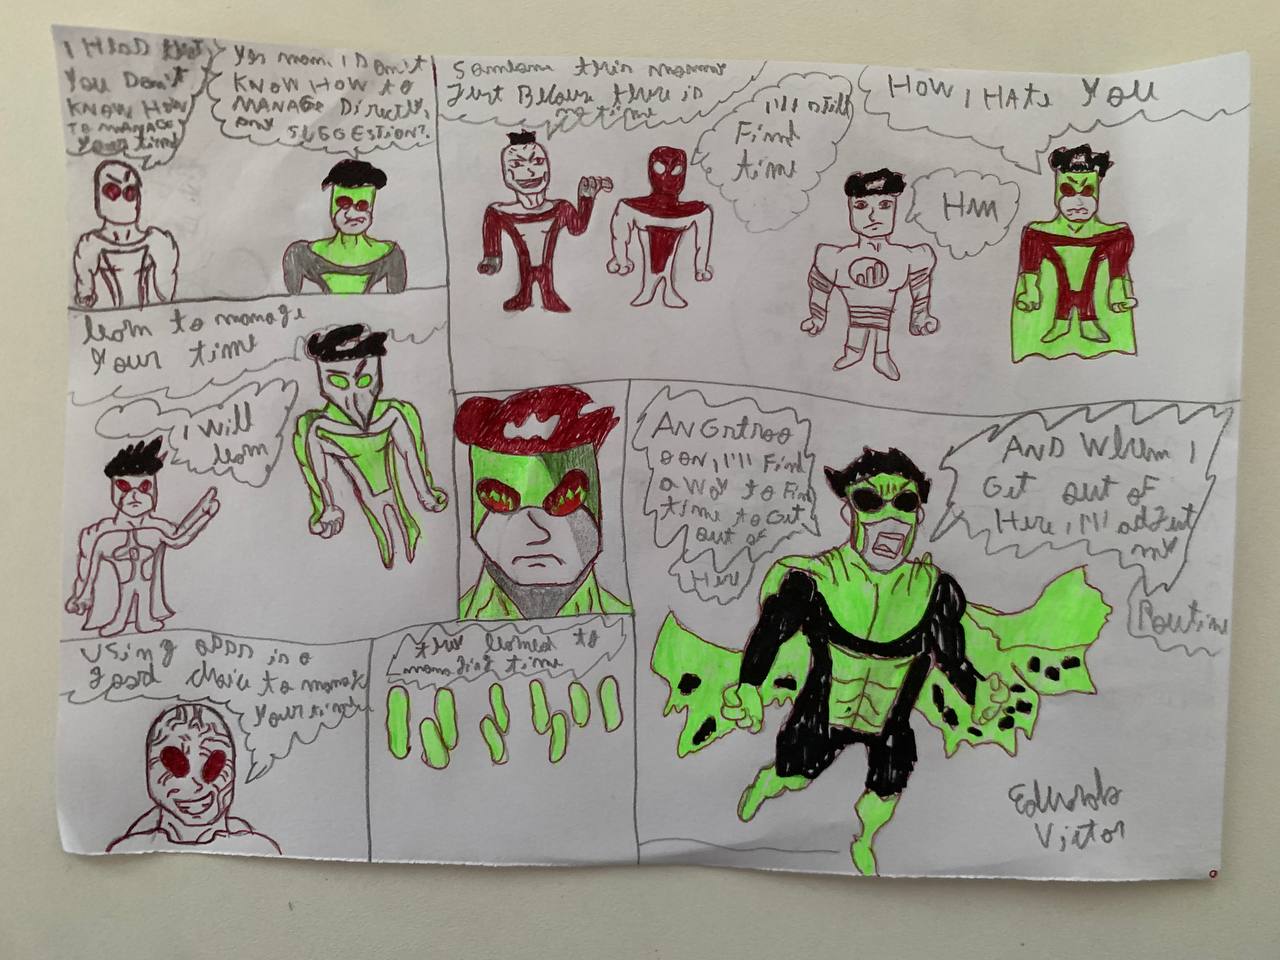 I HEAD that
You Don't
KNOW HOW
TO MANAGE
Your time
Yes mom, I Don't
KNOW HOW to
MANAGE Directly,
any
SUGGESTION?
Someone this
Just Because there is
no time
I'll still
Find
time
HOW I HAte You
Hm
learn to manage
Your time
I Will
learn
ANGrtroo
oon, I'll Find
a Way to Find
time to Get
out of
Here
AND When I
Get out of
Here, I'll adjust
my
Routine
Using apps is a
Good choice to manage
Your time
learned to
managing time
Eduardo
Victor